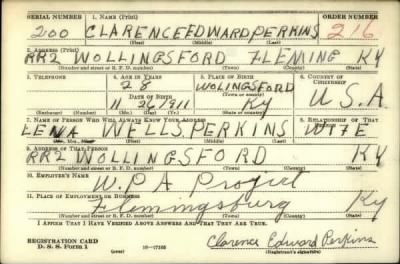 SERIAL NUMBER 1. NAME (Print) ORDER NUMBER
200 CLARENCE EDWARD PERKINS 216
(First) (Middle) (Last)
2. ADDRESS (Print)
RR2 WOLLINGSFORD FLEMING KY
(Number and street or R. F. D. number) (Town) (County) (State)
3. TELEPHONE 4. AGE IN YEARS 5. PLACE OF BIRTH 6. COUNTRY OF CITIZENSHIP
28 WOLINGSFORD
DATE OF BIRTH (Town or county)
11 26 1911 KY U.S.A
(Mo.) (Day) (Yr.) (State or country)
7. NAME OF PERSON WHO WILL ALWAYS KNOW YOUR ADDRESS 8. RELATIONSHIP OF THAT PERSON
LENA WELLS PERKINS WIFE
(Mr., Mrs., Miss) (First) (Middle) (Last)
9. ADDRESS OF THAT PERSON
RR2 WOLLINGSFORD KY
(Number and street or R. F. D. number) (Town) (County) (State)
10. EMPLOYER'S NAME
W.P.A Project
11. PLACE OF EMPLOYMENT OR BUSINESS
Flemingsburg Ky
(Number and street or R. F. D. number) (Town) (County) (State)
I AFFIRM THAT I HAVE VERIFIED ABOVE ANSWERS AND THAT THEY ARE TRUE.
REGISTRATION CARD
D. S. S. Form 1 (over) 16-17105 Clarence Edward Perkins
(Registrant's signature)